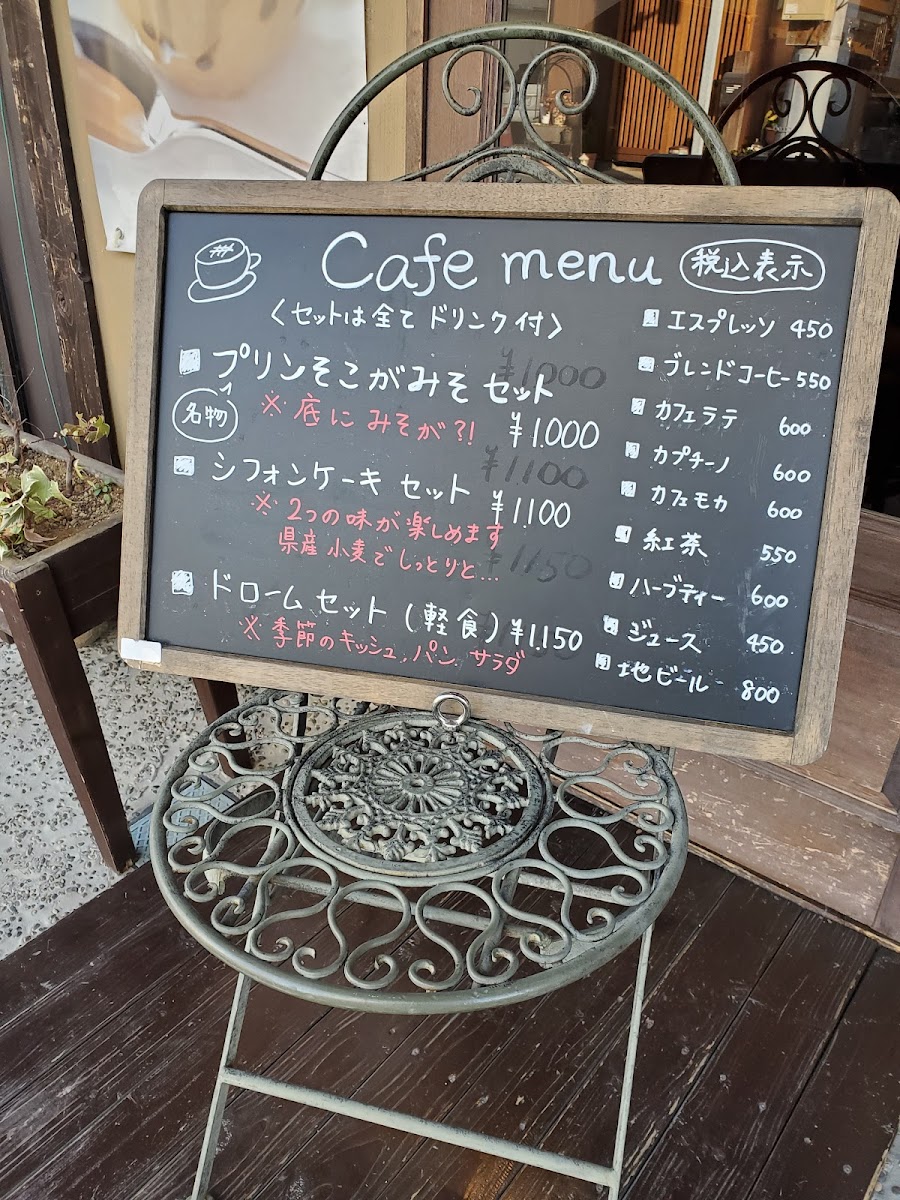 Cafe menu 税込表示
〈セットは全てドリンク付〉
プリンそこがみそ セット
名物
※底にみそが?!
¥1.000
シフォンケーキ セット
¥1100
※2つの味が楽しめます
県産小麦でしっとりと…
ドローム セット (軽食) ¥1.150
※季節のキッシュ, パン. サラダ
エスプレッソ 450
ブレンドコーヒー 550
カフェラテ 600
カプチーノ 600
カフェモカ 600
紅茶 550
ハーブティー 600
ジュース 450
地ビール 800